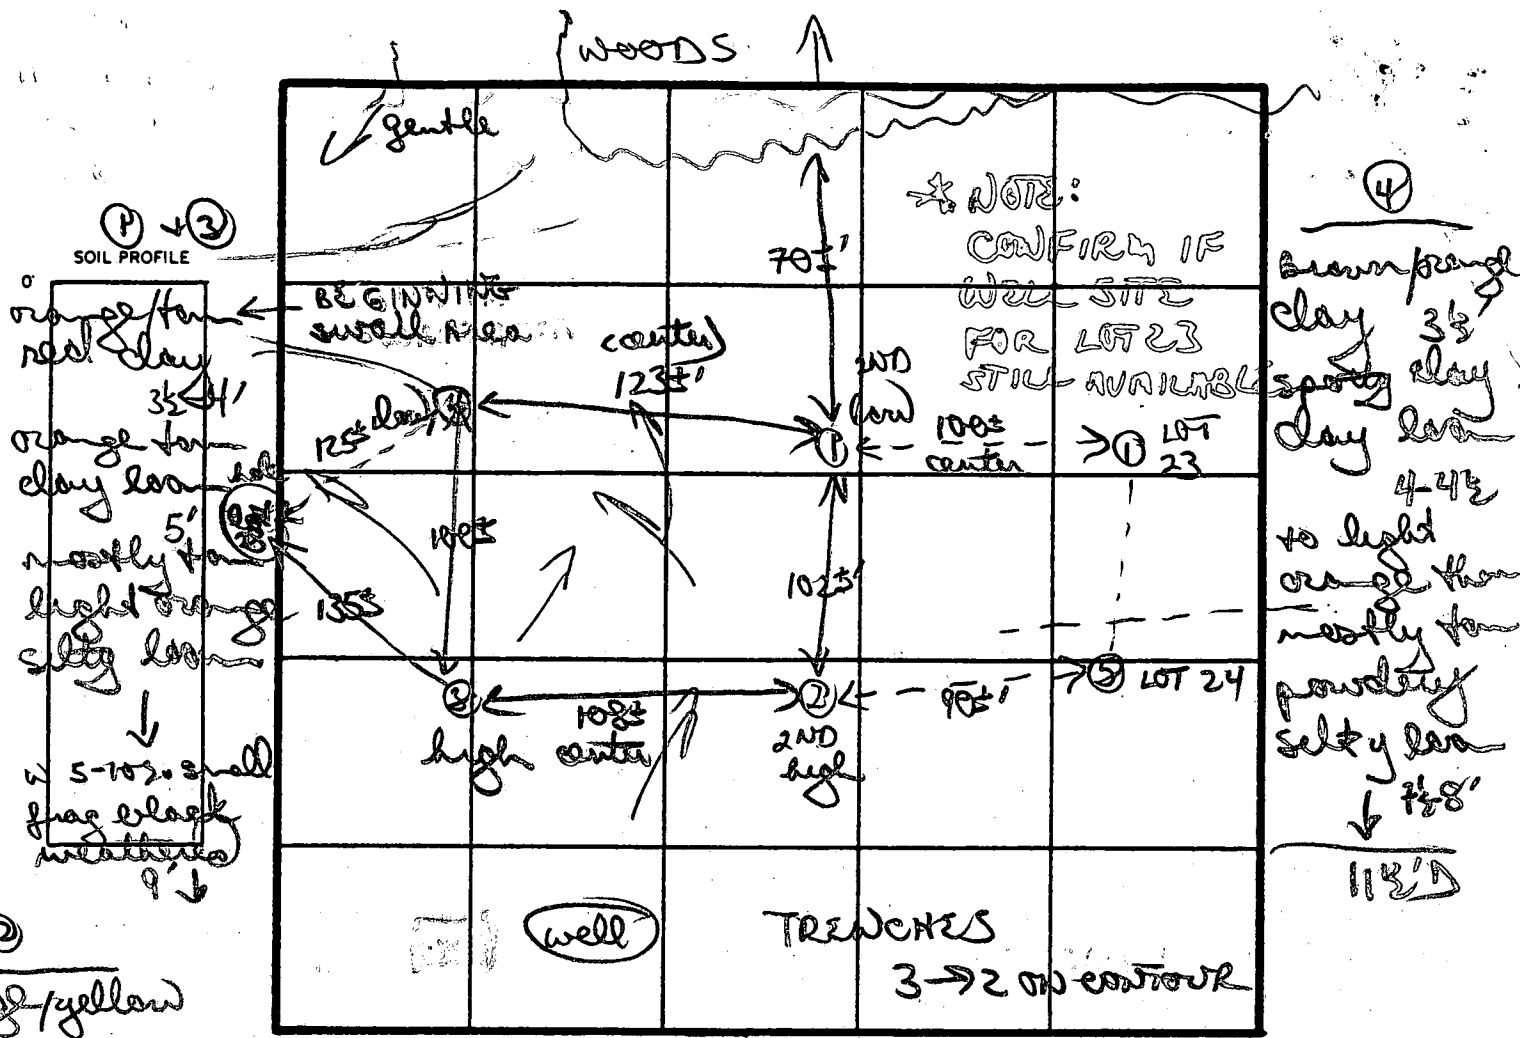 WOODS
gentle
① + ③
SOIL PROFILE
0
orange/tan
red clay
3½-4'
orange tan
clay loam
5'
mostly tan
light orange
silty loam
w 5-10% small
frag black
weathered
9'
②
/yellow
BEGINNING
swale Area
center
123±'
70±'
* NOTE:
CONFIRM IF
WELL SITE
FOR LOT 23
STILL AVAILABLE
2ND
low
low
125±
①
100±
center
① LOT
23
100±
102±'
135±
③
high
108±
center
②
2ND
high
90±'
⑤ LOT 24
well
TRENCHES
3→2 ON CONTOUR
④
Brown/orange
clay
3½'
spotty clay
clay loam
4-4½
to light
orange then
mostly tan
powdery
silty loam
7½-8'
11½'D